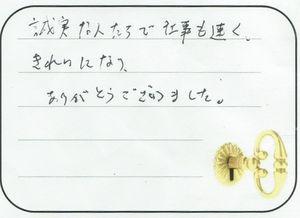 誠実な人たちで仕事も速く、
きれいになり、
ありがとうございました。